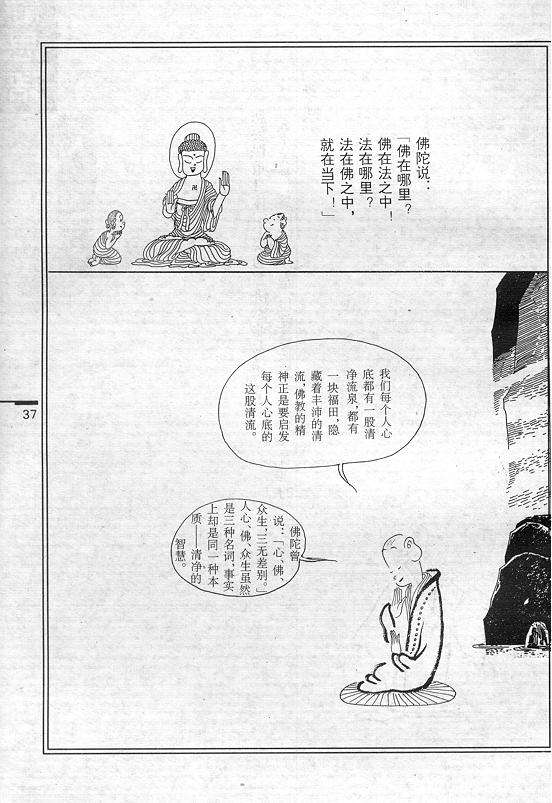 佛陀说：
「佛在哪里？
佛在法之中！
法在哪里？
法在佛之中，
就在当下！」
我们每个人心
底都有一股清
净流泉，都有
一块福田，隐
藏着丰沛的清
流，佛教的精
神正是要启发
每个人心底的
这股清流。
佛陀曾
说：「心、佛、
众生，三无差别。」
人心、佛、众生虽然
是三种名词，事实
上却是同一种本
质——清净的
智慧。
37